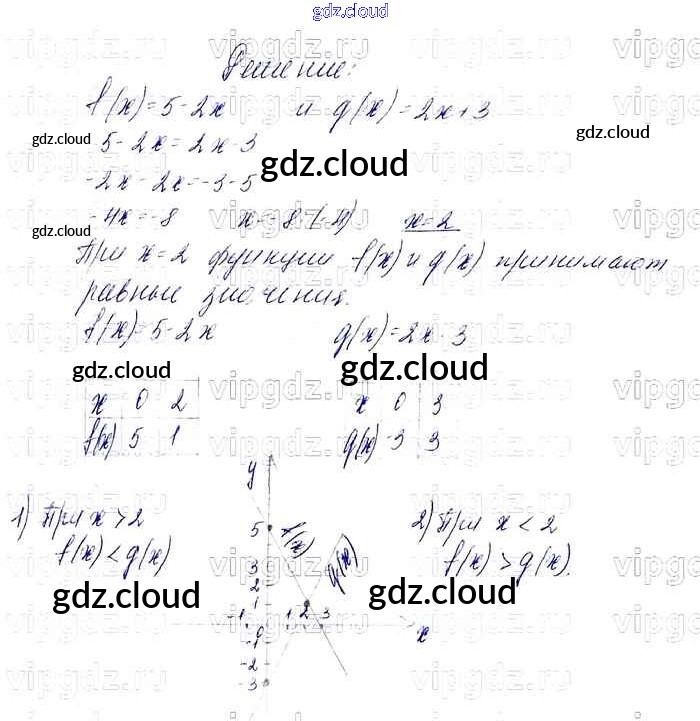 gdz.cloud
Решение:
f(x)=5-2x и g(x)=2x+3
5-2x=2x-3
-2x-2x=-3-5
-4x=-8 x=-8:(-4) x=2
При x=2 функции f(x) и g(x) принимают
равные значения.
f(x)=5-2x g(x)=2x-3
x 0 2 x 0 3
f(x) 5 1 g(x) -3 3
y
1) При x>2 2) При x<2
f(x)<g(x) f(x)>g(x).
5 f(x) g(x)
3
2
1
-1 0 1 2 3 x
-1
-2
-3
gdz.cloud
vipgdz.ru